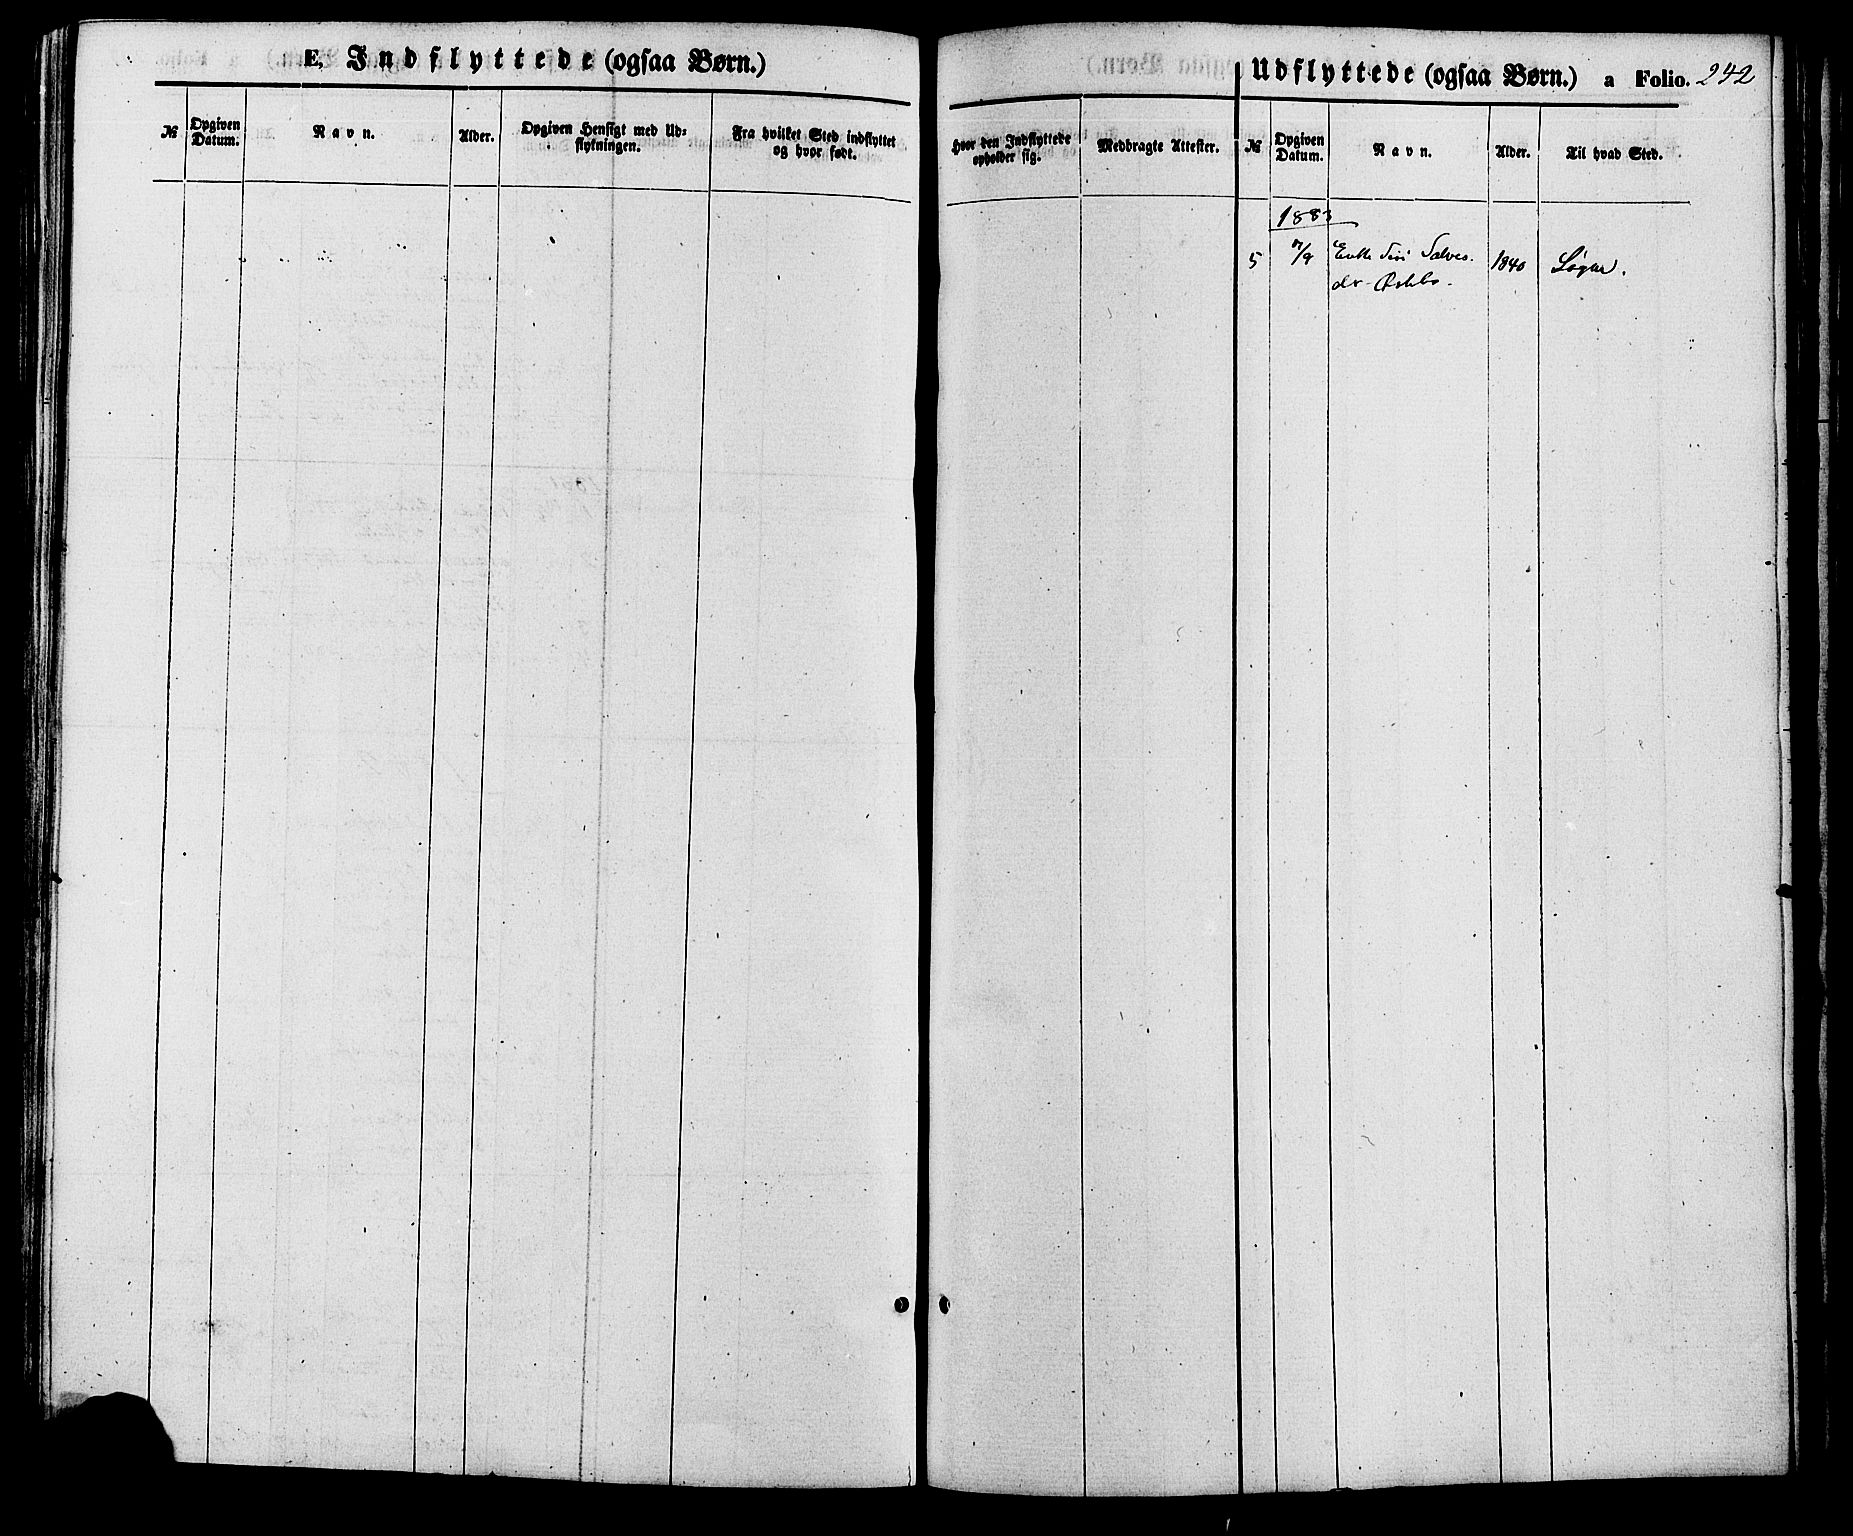 E, Indflyttede (ogsaa Børn.)
№
Opgiven Datum.
Navn.
Alder.
Opgiven Hensigt med Ud-
flytningen.
Fra hvilket Sted indflyttet
og hvor født.
Udflyttede (ogsaa Børn.) a Folio. 242
Hvor den Indflyttede
opholder sig.
Medbragte Attester.
№
Opgiven
Datum.
Navn.
Alder.
Til hvad Sted.
1883
5 Enke Siri Salves. 1840 Søgne.
dr